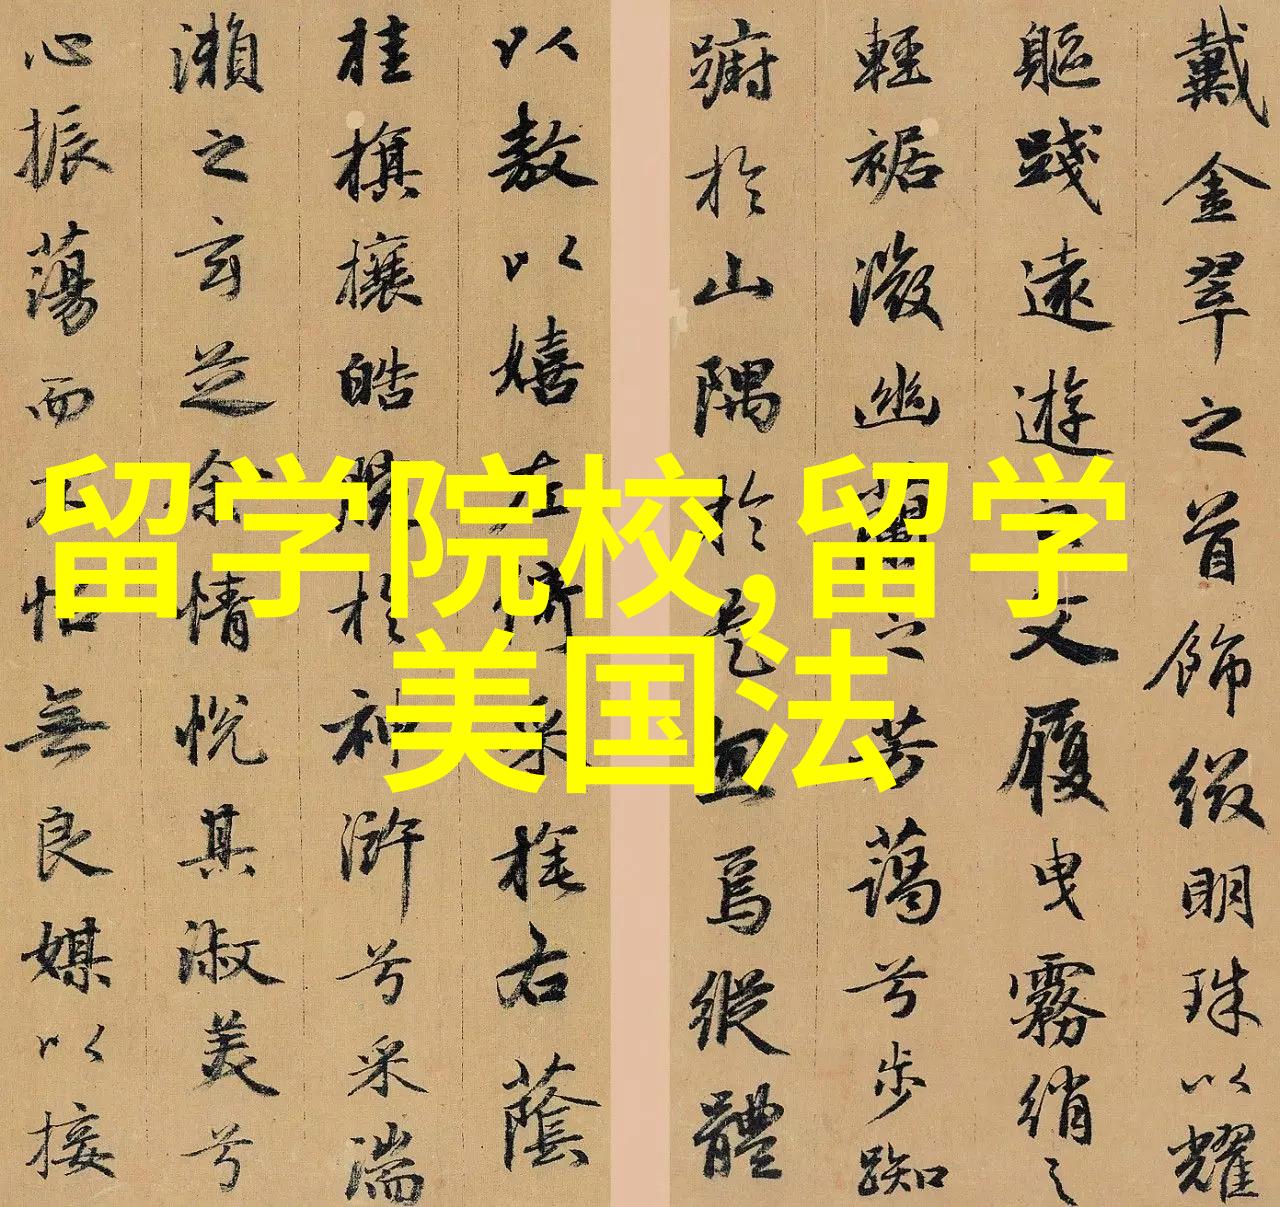 留学院校,留学
美国法
戴金翠之首飾綴明珠以耀
軀踐遠遊之文履曳霧綃之
輕裾微幽蘭之芳藹兮步踟
躕於山隅於是忽焉縱體
以敖以嬉左倚采旄右蔭
桂旗攘皓腕於神滸兮采湍
瀨之玄芝余情悅其淑美兮
心振蕩而不怡無良媒以接